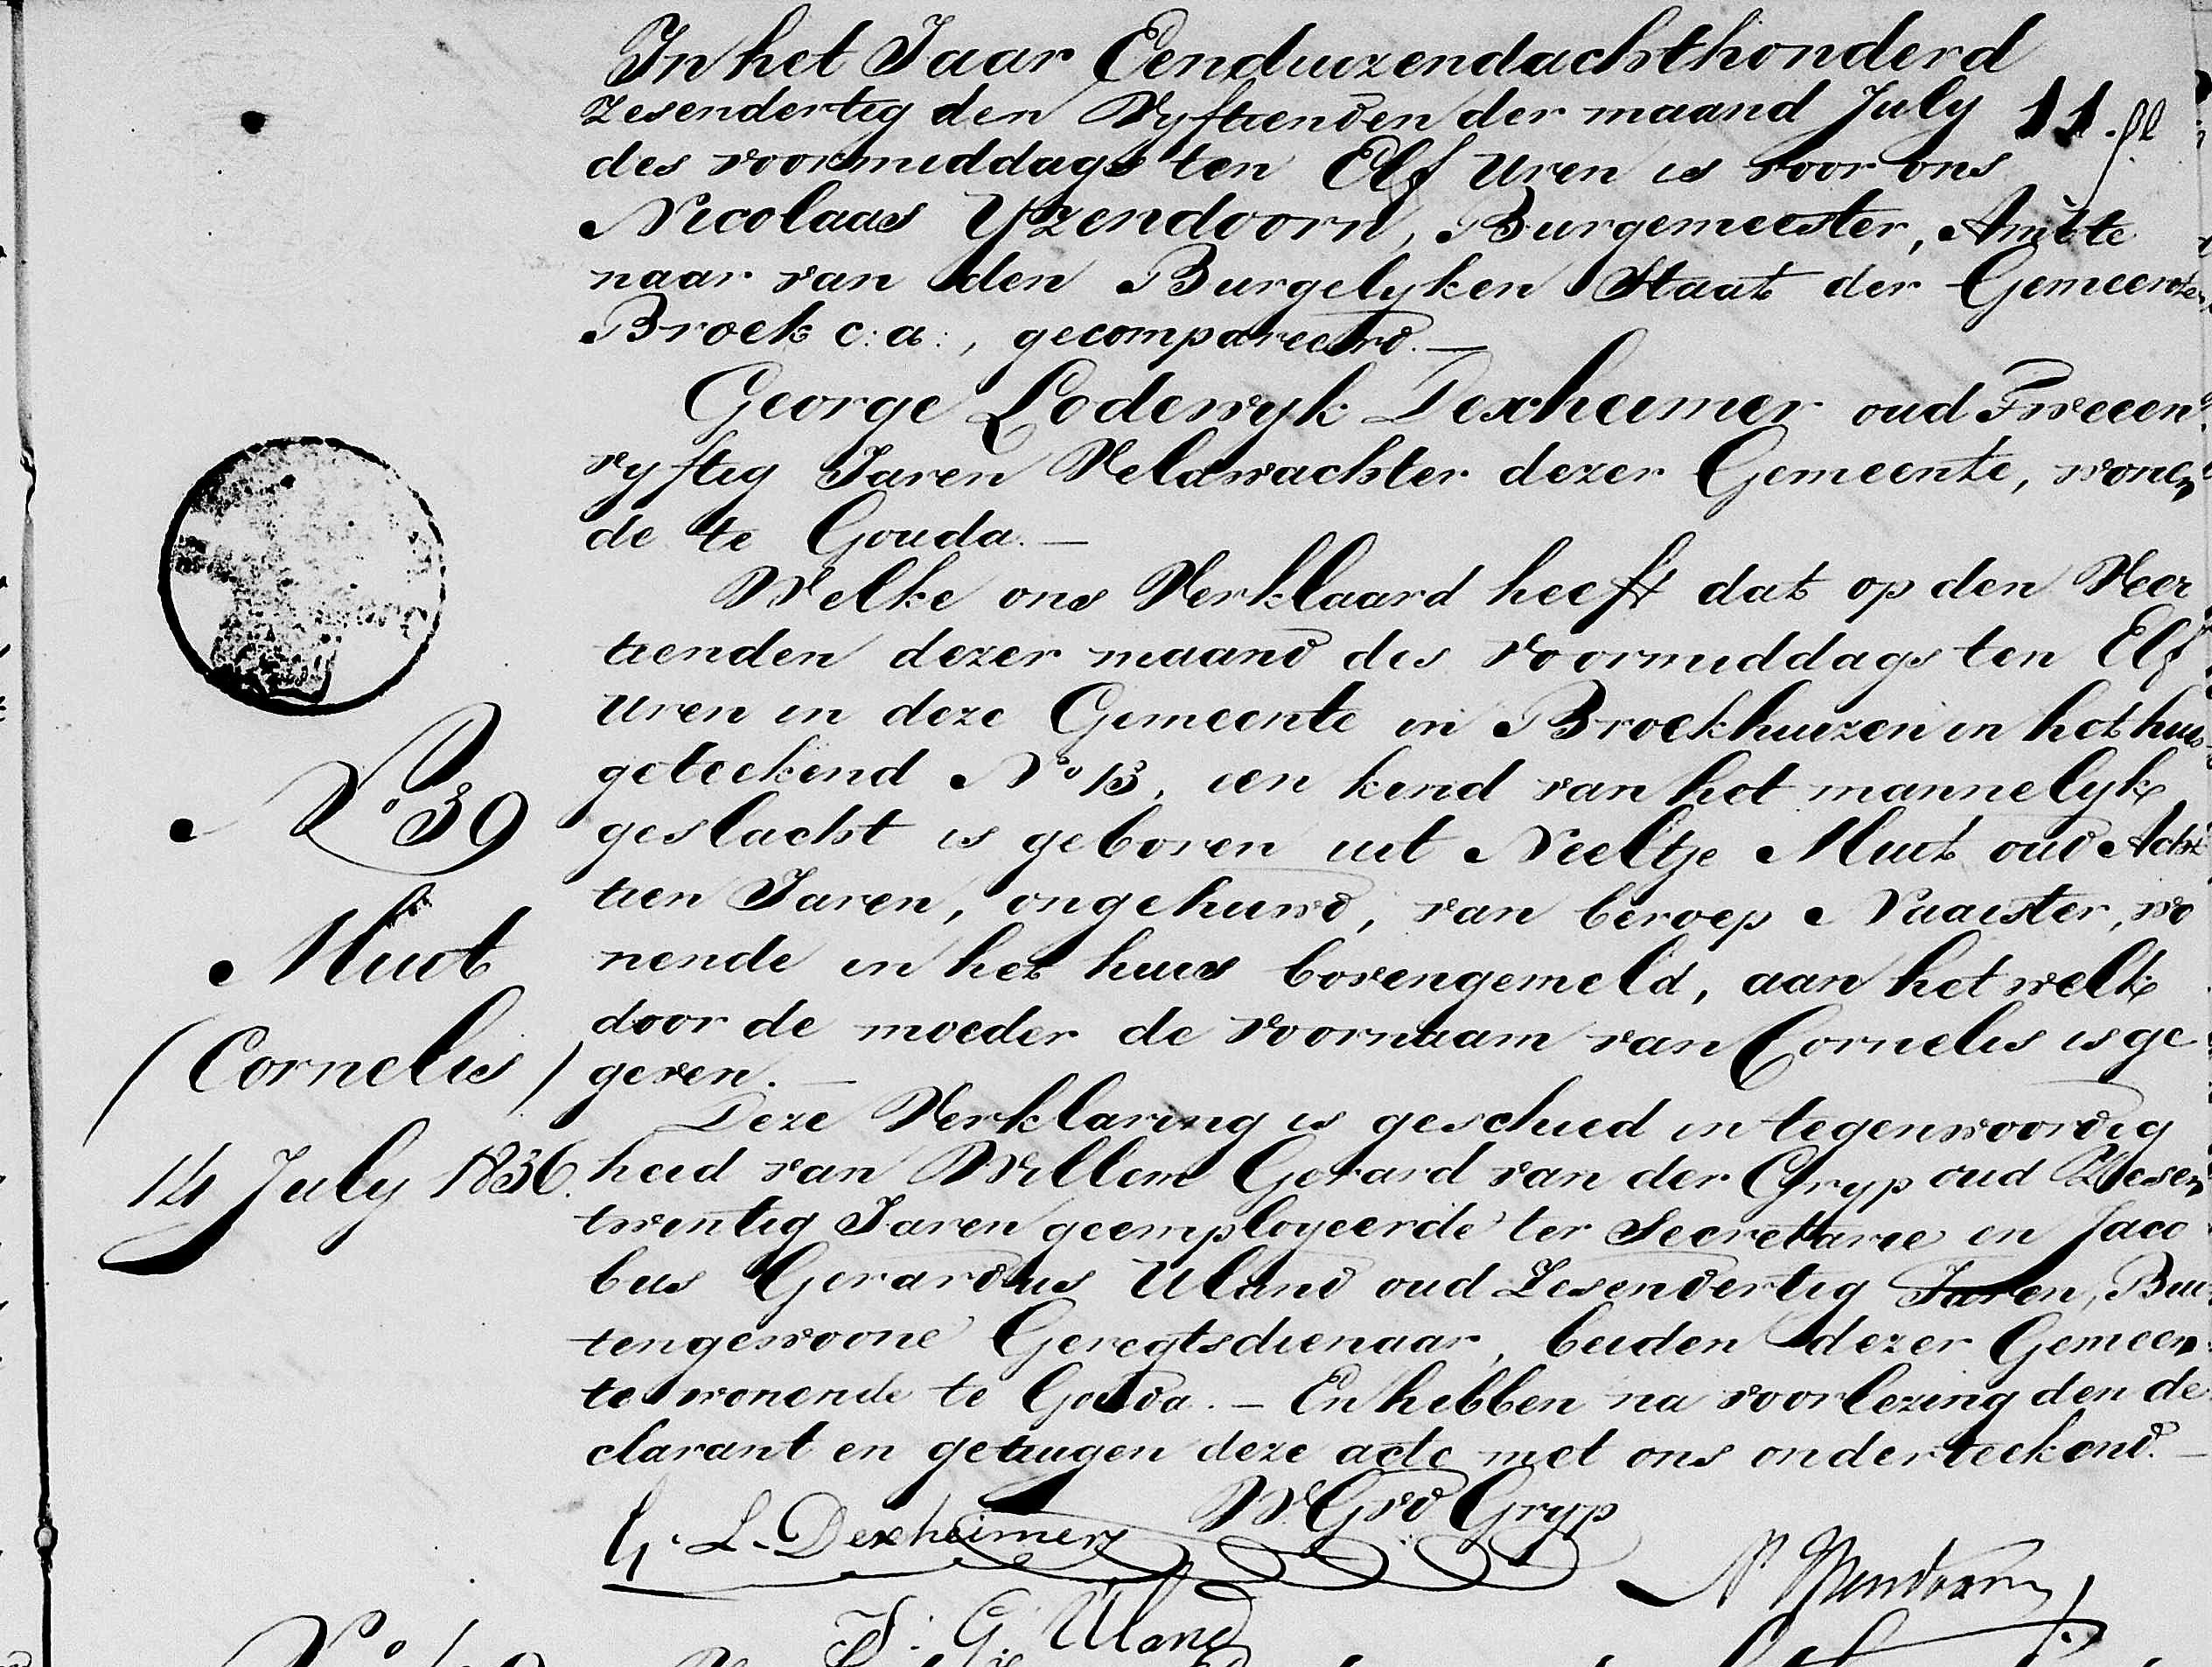 In het Jaar Eenduizendachthonderd
Zesendertig den Vyftienden der maand July 11.
des voormiddags ten Elf Uren is voor ons
Nicolaas Yzendoorn, Burgemeester, Ambte
naar van den Burgelyken Staat der Gemeente
Broek c:a:, gecompareerd. —
George Lodewyk Dexheimer oud Tweeen
vyftig Jaren Veldwachter dezer Gemeente, wonen
de te Gouda. —
Welke ons Verklaard heeft dat op den Veer
tienden dezer maand des Voormiddags ten Elf
Uren in deze Gemeente in Broekhuizen in het huis
geteekend No 13, een kind van het mannelyk
No 39
geslacht is geboren uit Neeltje Muit oud Acht
tien Jaren, ongehuwd, van beroep Naaister, wo
Muit
nende in het huis bovengemeld, aan het welk
door de moeder de voornaam van Cornelis is ge
(Cornelis)
geven. —
Deze Verklaring is geschied in tegenwoordig
14 July 1836.
heid van Willem Gerard van der Gryp oud Zesen
twintig Jaren geemployeerde ter Secretarie en Jaco
bus Gerardus Uland oud Zesendertig Jaren, Bui
tengewoone Geregtsdienaar, beiden dezer Gemeen
te wonende te Gouda. — En hebben na voorlezing den de
clarant en getuigen deze acte met ons onderteekend. —
W G vd Gryp
G. L. Dexheimer
N. Yzendoorn
J: G: Uland